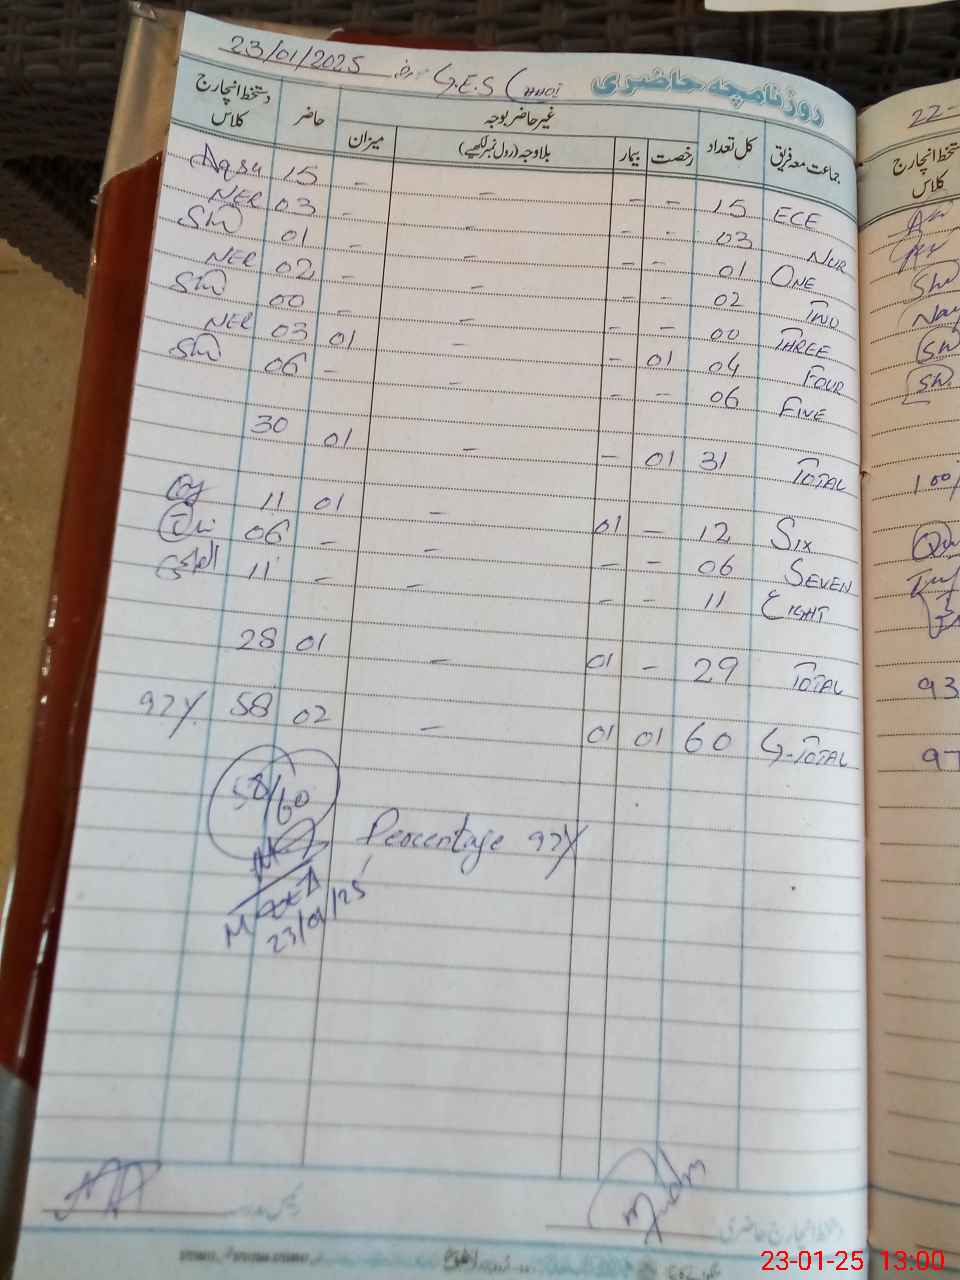 23/01/2025 G.E.S
روزنامچہ حاضری
جماعت معہ فریق کل تعداد غیر حاضر بوجہ حاضر دستخط انچارج کلاس
رخصت بیمار بلاوجہ (رول نمبر لکھیے) میزان
ECE 15 - - - - 15 Aqsa
NUR 03 - - - - 03 NER
ONE 01 - - - - 01 SW
TWO 02 - - - - 02 NER
THREE 00 - - - - 00 SW
FOUR 04 01 - - 01 03 NER
FIVE 06 - - - - 06 SW
TOTAL 31 01 - - 01 30
SIX 12 - 01 - 01 11
SEVEN 06 - - - - 06
EIGHT 11 - - - - 11
TOTAL 29 - 01 - 01 28
G-TOTAL 60 01 01 - 02 58 97%
58/60
Percentage 97%
23/01/25
22-
دستخط انچارج
کلاس
SW
SW
SW
100%
93
97
23-01-25 13:00